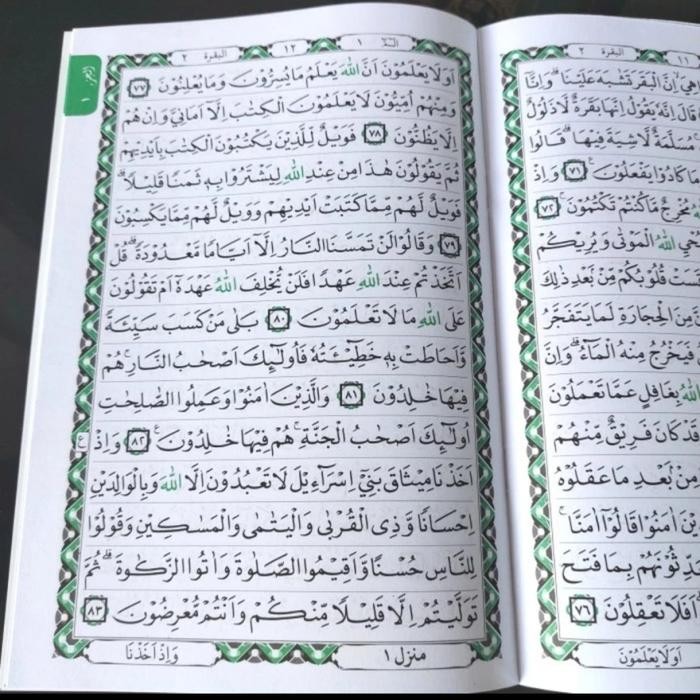 البقرة ٢
١٢
الٓمّٓ ١
اَوَلَا يَعْلَمُوْنَ اَنَّ اللّٰهَ يَعْلَمُ مَا يُسِرُّوْنَ وَمَا يُعْلِنُوْنَ ٧٧
وَمِنْهُمْ اُمِّيُّوْنَ لَا يَعْلَمُوْنَ الْكِتٰبَ اِلَّآ اَمَانِيَّ وَاِنْ هُمْ
اِلَّا يَظُنُّوْنَ ٧٨ فَوَيْلٌ لِّلَّذِيْنَ يَكْتُبُوْنَ الْكِتٰبَ بِاَيْدِيْهِمْ
ثُمَّ يَقُوْلُوْنَ هٰذَا مِنْ عِنْدِ اللّٰهِ لِيَشْتَرُوْا بِهٖ ثَمَنًا قَلِيْلًا ۗ
فَوَيْلٌ لَّهُمْ مِّمَّا كَتَبَتْ اَيْدِيْهِمْ وَوَيْلٌ لَّهُمْ مِّمَّا يَكْسِبُوْنَ
٧٩ وَقَالُوْا لَنْ تَمَسَّنَا النَّارُ اِلَّآ اَيَّامًا مَّعْدُوْدَةً ۗ قُلْ
اَتَّخَذْتُمْ عِنْدَ اللّٰهِ عَهْدًا فَلَنْ يُّخْلِفَ اللّٰهُ عَهْدَهٗٓ اَمْ تَقُوْلُوْنَ
عَلَى اللّٰهِ مَا لَا تَعْلَمُوْنَ ٨٠ بَلٰى مَنْ كَسَبَ سَيِّئَةً
وَّاَحَاطَتْ بِهٖ خَطِيْۤـَٔتُهٗ فَاُولٰۤىِٕكَ اَصْحٰبُ النَّارِ ۚ هُمْ
فِيْهَا خٰلِدُوْنَ ٨١ وَالَّذِيْنَ اٰمَنُوْا وَعَمِلُوا الصّٰلِحٰتِ
اُولٰۤىِٕكَ اَصْحٰبُ الْجَنَّةِ ۚ هُمْ فِيْهَا خٰلِدُوْنَ ࣖ ٨٢ وَاِذْ
اَخَذْنَا مِيْثَاقَ بَنِيْٓ اِسْرَاۤءِيْلَ لَا تَعْبُدُوْنَ اِلَّا اللّٰهَ وَبِالْوَالِدَيْنِ
اِحْسَانًا وَّذِى الْقُرْبٰى وَالْيَتٰمٰى وَالْمَسٰكِيْنِ وَقُوْلُوْا
لِلنَّاسِ حُسْنًا وَّاَقِيْمُوا الصَّلٰوةَ وَاٰتُوا الزَّكٰوةَ ۗ ثُمَّ
تَوَلَّيْتُمْ اِلَّا قَلِيْلًا مِّنْكُمْ وَاَنْتُمْ مُّعْرِضُوْنَ ٨٣
منزل ١
وَاِذْ اَخَذْنَا
البقرة ٢
١١
هِيَ ۙ اِنَّ الْبَقَرَ تَشٰبَهَ عَلَيْنَا ۗ وَاِنَّآ
قَالَ اِنَّهٗ يَقُوْلُ اِنَّهَا بَقَرَةٌ لَّا ذَلُوْلٌ
مُسَلَّمَةٌ لَّا شِيَةَ فِيْهَا ۗ قَالُوا
مَا كَادُوْا يَفْعَلُوْنَ ࣖ ٧١ وَاِذْ
مُخْرِجٌ مَّا كُنْتُمْ تَكْتُمُوْنَ ۚ ٧٢
اللّٰهُ الْمَوْتٰى وَيُرِيْكُمْ
قُلُوْبُكُمْ مِّنْۢ بَعْدِ ذٰلِكَ
مِنَ الْحِجَارَةِ لَمَا يَتَفَجَّرُ
فَيَخْرُجُ مِنْهُ الْمَاۤءُ ۗ وَاِنَّ
اللّٰهُ بِغَافِلٍ عَمَّا تَعْمَلُوْنَ
قَدْ كَانَ فَرِيْقٌ مِّنْهُمْ
مِنْۢ بَعْدِ مَا عَقَلُوْهُ
اٰمَنُوْا قَالُوْٓا اٰمَنَّا ۚ
بِمَا فَتَحَ
اَفَلَا تَعْقِلُوْنَ ٧٦
اَوَلَا يَعْلَمُوْنَ